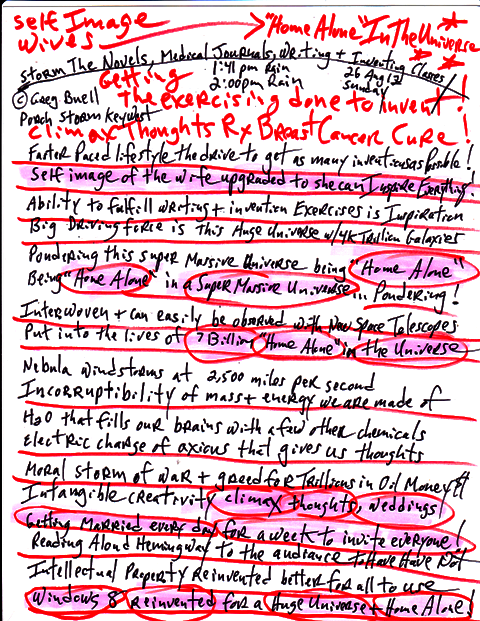 Self Image → "Home Alone" In The Universe
Wives
Storm The Novels, Medical Journals, Writing + Inventing Classes
Getting 1:41 pm Rain 26 Aug 12
2:00pm Rain Sunday
© Greg Buell The exercising done to invent!
Porch Storm Key West
Climax Thoughts Rx Breast Cancer Cure!
Faster Paced lifestyle the drive to get as many inventions as Possible!
Self image of the wife upgraded to she can Inspire Everything!
Ability to fulfill writing + invention Exercises is Inspiration
Big Driving force is this Huge Universe w/4K Trillion Galaxies
Pondering this super Massive Universe being "Home Alone"
Being "Home Alone" in a Super Massive Universe ... in Pondering!
Interwoven + can easily be observed with New Space Telescopes
Put into the lives of 7 Billion "Home Alone" in the Universe
Nebula windstorms at 2,500 miles per second
Incorruptibility of mass + energy we are made of
H2O that fills our brains with a few other chemicals
Electric charge of axious that gives us thoughts
Moral storm of war + greed for Trillions in Oil Money
Intangible creativity climax thoughts, weddings!
Getting Married every day for a week to invite everyone!
Reading Aloud Hemingway to the audience to Have Have Not
Intellectual Property Reinvented better for all to use
Windows 8 reinvented for a Huge Universe + Home Alone!